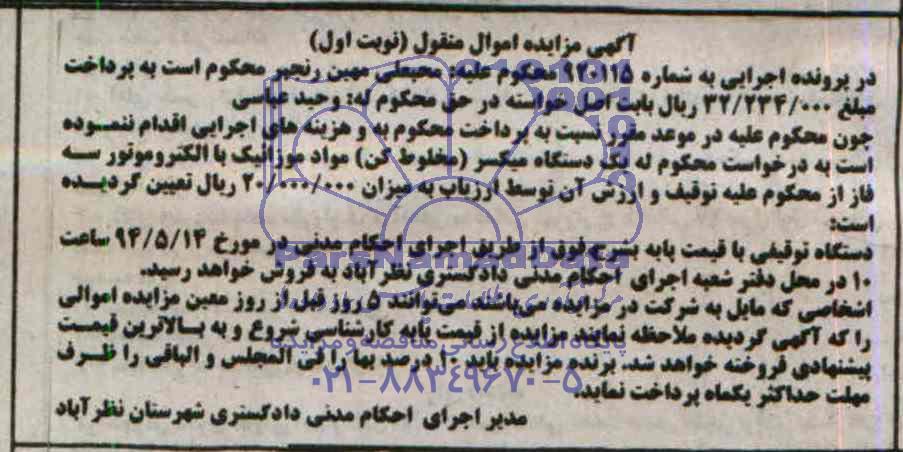 آگهی مزایده اموال منقول (نوبت اول)
در پرونده اجرایی به شماره ۹۲۰۱۱۵ محکوم علیه: محبعلی مهین رنجبر محکوم است به پرداخت
مبلغ ۳۲/۲۳۴/۰۰۰ ریال بابت اصل خواسته در حق محکوم له: وحید عباسی
چون محکوم علیه در موعد مقرر نسبت به پرداخت محکوم به و هزینه های اجرایی اقدام ننموده
است به درخواست محکوم له یک دستگاه میکسر (مخلوط کن) مواد موزائیک با الکتروموتور سه
فاز از محکوم علیه توقیف و ارزش آن توسط ارزیاب به میزان ۲۰/۰۰۰/۰۰۰ ریال تعیین گردیده
است:
دستگاه توقیفی با قیمت پایه بشرح فوق از طریق اجرای احکام مدنی در مورخ ۹۴/۵/۱۴ ساعت
۱۰ در محل دفتر شعبه اجرای احکام مدنی دادگستری نظرآباد به فروش خواهد رسید.
اشخاصی که مایل به شرکت در مزایده می‌باشند می‌توانند ۵ روز قبل از روز معین مزایده اموالی
را که آگهی گردیده ملاحظه نمایند مزایده از قیمت پایه کارشناسی شروع و به بالاترین قیمت
پیشنهادی فروخته خواهد شد. برنده مزایده باید ۱۰ درصد بها را فی المجلس و الباقی را ظرف
مهلت حداکثر یکماه پرداخت نماید.
مدیر اجرای احکام مدنی دادگستری شهرستان نظرآباد
ParsNamadData
پایگاه اطلاع رسانی مناقصه و مزایده
۰۲۱-۸۸۳۴۹۶۷۰-۵